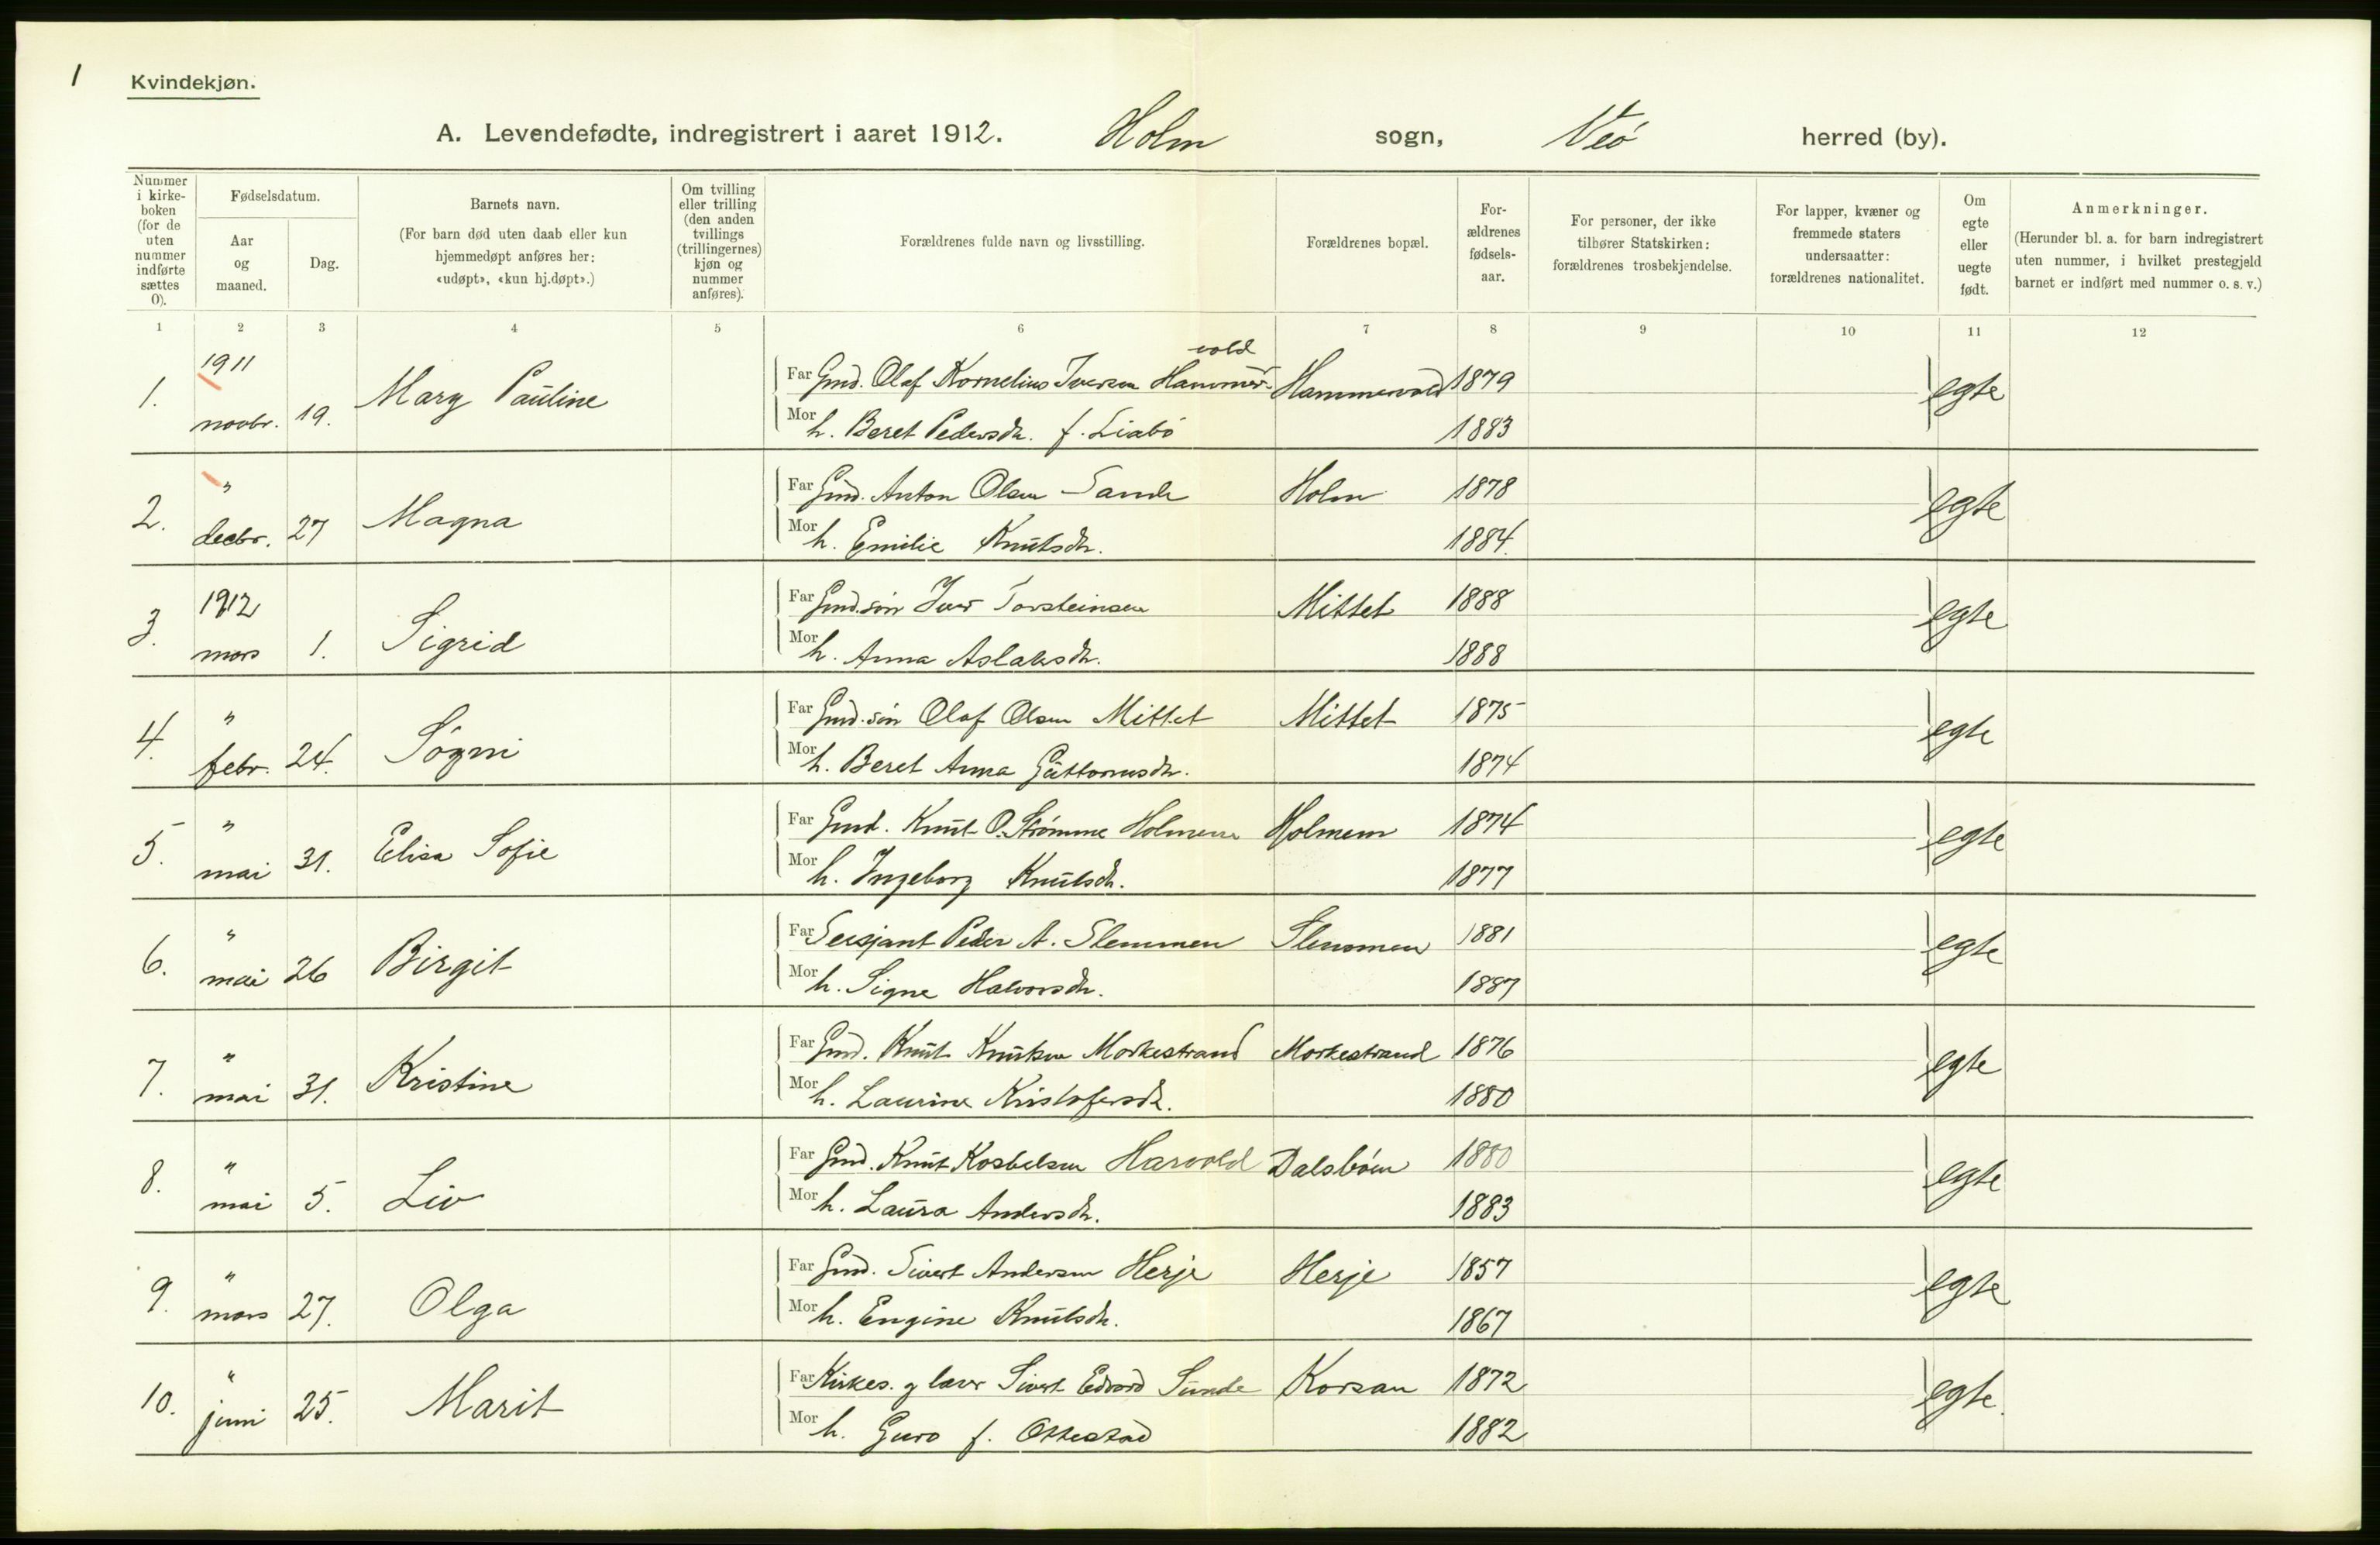 1
Kvindekjøn.
A. Levendefødte, indregistrert i aaret 1912. Holm sogn, Veö herred (by).
Nummer i kirkeboken (for de uten nummer indførte sættes 0).
Fødselsdatum.
Aar og maaned.
Dag.
Barnets navn.
(For barn død uten daab eller kun hjemmedøpt anføres her: «udøpt», «kun hj.døpt».)
Om tvilling eller trilling (den anden tvillings (trillingernes) kjøn og nummer anføres).
Forældrenes fulde navn og livsstilling.
Forældrenes bopæl.
For-ældrenes fødsels-aar.
For personer, der ikke tilhører Statskirken: forældrenes trosbekjendelse.
For lapper, kvæner og fremmede staters undersaatter: forældrenes nationalitet.
Om egte eller uegte født.
Anmerkninger.
(Herunder bl. a. for barn indregistrert uten nummer, i hvilket prestegjeld barnet er indført med nummer o. s. v.)
1 2 3 4 5 6 7 8 9 10 11 12
1. 1911 novbr. 19. Mary Pauline Far Gmd. Olaf Kornelius Iversen Hammervold Hammervold 1879 egte
Mor h. Beret Pedersdr. f. Liabö 1883
2. " decbr. 27 Magna Far Gmd. Anton Olsen Sande Holm 1878 egte
Mor h. Emilie Knutsdr. 1884.
3. 1912 mars 1. Sigrid Far Gmd.sön Iver Torsteinsen Mittet 1888 egte
Mor h. Anna Aslaksdr. 1888
4. " febr. 24. Sögni Far Gmd.sön Olaf Olsen Mittet Mittet 1875 egte
Mor h. Beret Anna Guttormsdr. 1874
5. " mai 31. Elisa Sofie Far Gmd. Knut O. Strømme Holmem Holmem 1874 egte
Mor h. Ingeborg Knutsdr. 1877
6. " mai 26 Birgit Far Sersjant Peder A. Slemmen Slemmen 1881 egte
Mor h. Signe Halvorsdr. 1887
7. " mai 31. Kristine Far Gmd. Knut Knutsen Morkestrand Morkestrand 1876 egte
Mor h. Laurine Kristofersdr. 1880
8. " mai 5. Liv Far Gmd. Knut Kosbelsen Harvold Dalsböen 1880 egte
Mor h. Laura Andersdr. 1883
9. " mars 27. Olga Far Gmd. Sivert Andersen Herje Herje 1857 egte
Mor h. Engine Knutsdr. 1867
10. " juni 25. Marit Far Kirkes. og lærer Sivert Edvard Sunde Korsan 1872 egte.
Mor h. Guro f. Ottestad 1882